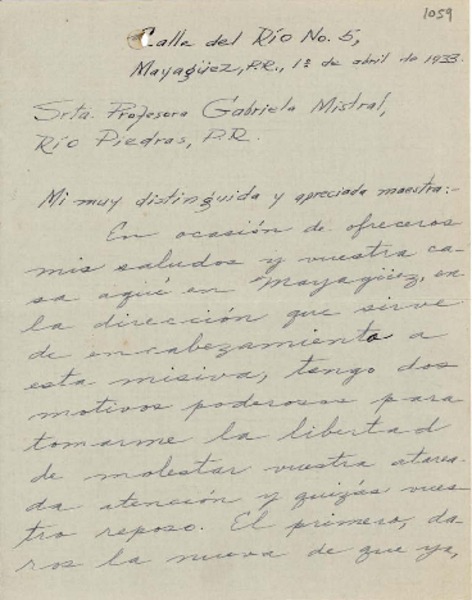 1059
Calle del Río No. 5,
Mayagüez, P.R., 1º de abril de 1933.
Srta. Profesora Gabriela Mistral,
Río Piedras, P.R.
Mi muy distinguida y apreciada maestra:-
En ocasión de ofreceros
mis saludos y vuestra ca-
sa aquí en Mayagüez, en
la dirección que sirve
de encabezamiento a
esta misiva, tengo dos
motivos poderosos para
tomarme la libertad
de molestar vuestra atarea-
da atención y quizás vues-
tro reposo. El primero, da-
ros la nueva de que ya,